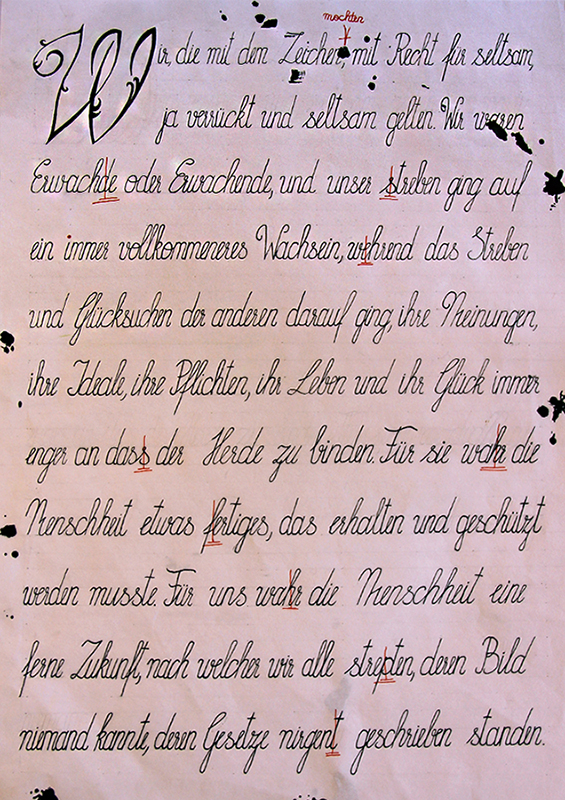 mochten
Wir, die mit dem Zeichen, mit Recht für seltsam,
ja verrückt und seltsam gelten. Wir waren
Erwachde oder Erwachende, und unser streben ging auf
ein immer vollkommeneres Wachsein, wehrend das Streben
und Glücksuchen der anderen darauf ging, ihre Meinungen,
ihre Ideale, ihre Pflichten, ihr Leben und ihr Glück immer
enger an dass der Herde zu binden. Für sie wahr die
Menschheit etwas fertiges, das erhalten und geschützt
werden musste. Für uns wahr die Menschheit eine
ferne Zukunft, nach welcher wir alle strepten, deren Bild
niemand kannte, deren Gesetze nirgent geschrieben standen.